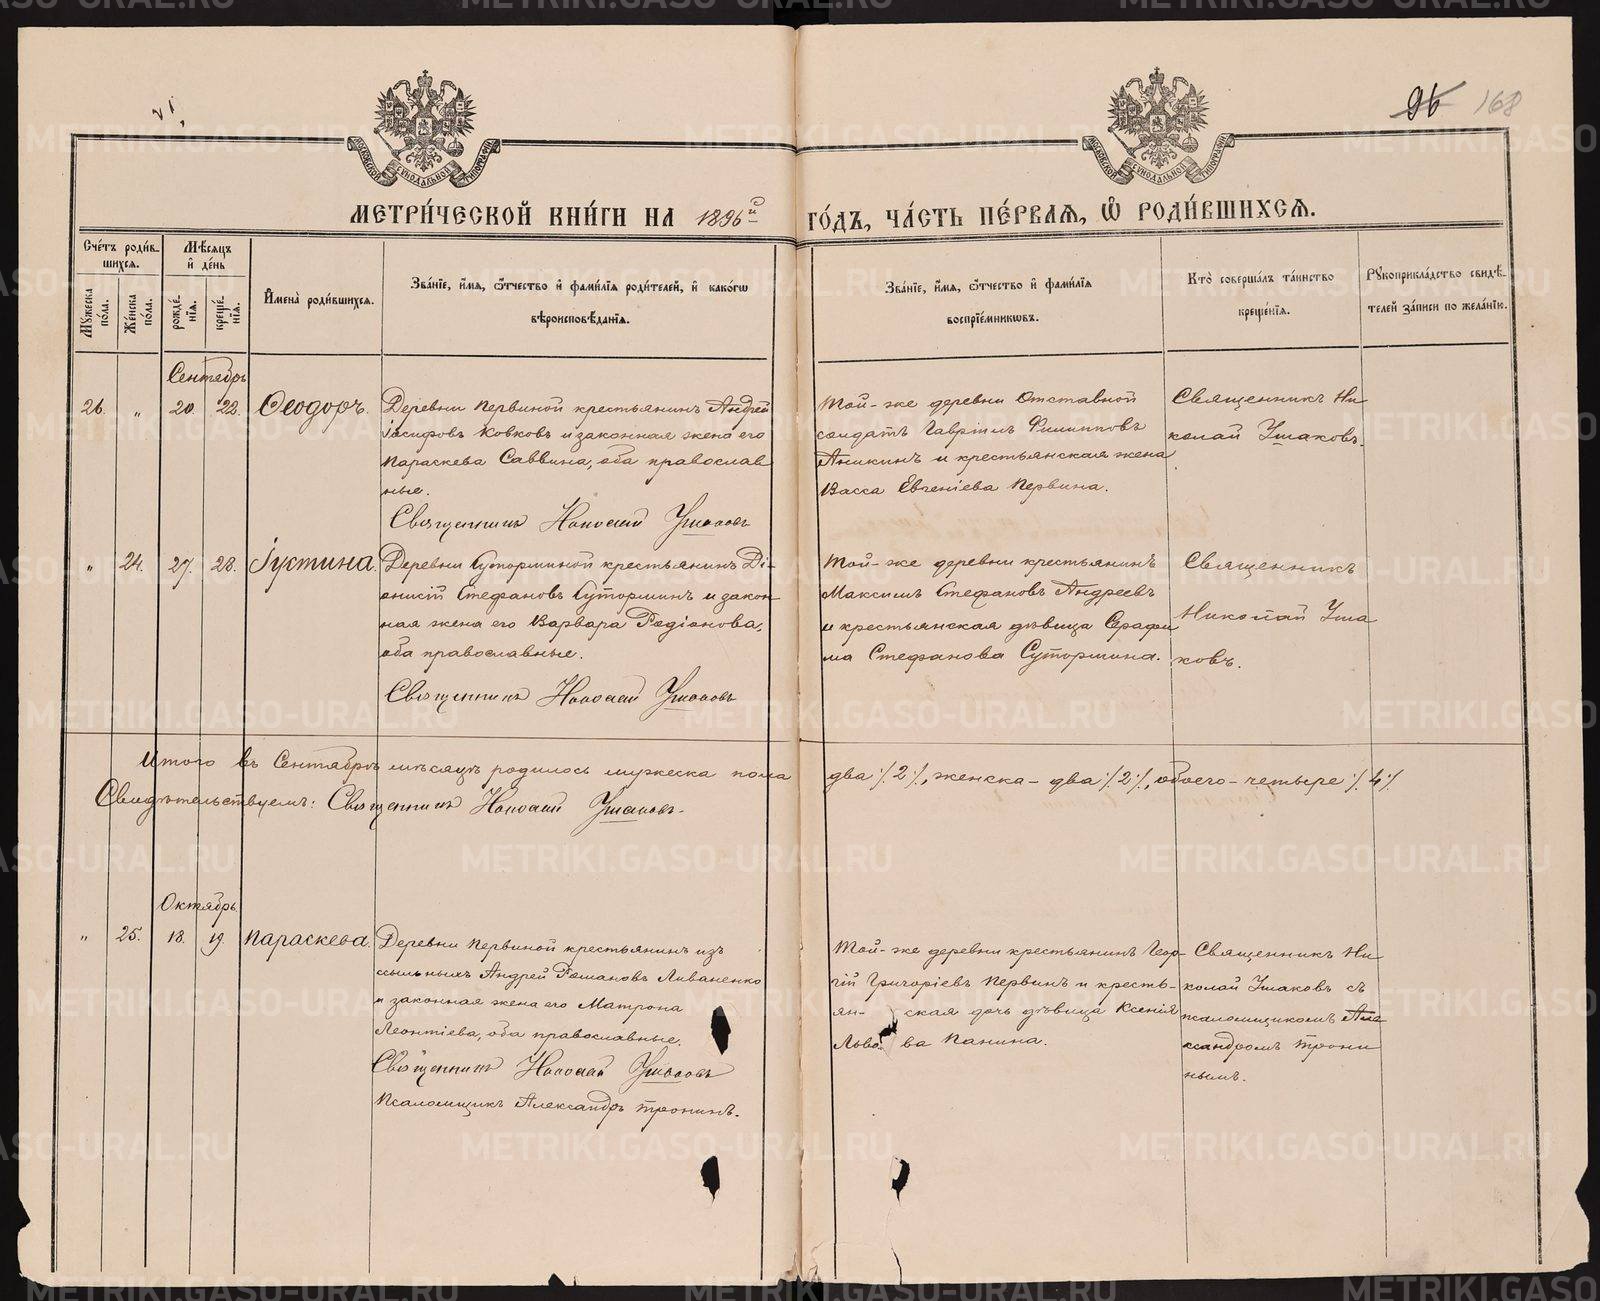 96 168
МОСКОВСКОЙ СѴНОДАЛЬНОЙ ТИПОГРАФІИ
МОСКОВСКОЙ СѴНОДАЛЬНОЙ ТИПОГРАФІИ
МЕТРИ́ЧЕСКОЙ КНИ́ГИ НА 1896й ГО́ДЪ, ЧА́СТЬ ПЕ́РВАЯ, Ѡ РОДИ́ВШИХСЯ.
Сче́тъ роди́в-
шихся.
Му́жеска по́ла.
Же́нска по́ла.
Мѣ́сяцъ
и де́нь
рожде́-
нія.
креще́-
нія.
Имена̀ роди́вшихся.
Зва́ніе, и́мя, ѻ́тчество и фами́лія роди́телей, и како́гѡ
вѣроисповѣ́данія.
Зва́ніе, и́мя, ѻ́тчество и фами́лія
воспріе́мникѡвъ.
Кто̀ соверша́лъ та́инство
креще́нія.
Рукоприкла́дство свидѣ́-
телей за́писи по жела́нію.
Сентябрь
26. „ 20. 22. Ѳеодоръ.
Деревни Первиной крестьянинъ Андрей
Іосифовъ Ковковъ и законная жена его
Параскева Саввина, оба православ
ные.
Священникъ Николай Ушаковъ
Той-же деревни Отставной
солдатъ Гавріилъ Филипповъ
Аникинъ и крестьянская жена
Васса Евгеніева Первина.
Священникъ Ни
колай Ушаковъ.
„ 24. 27. 28. Іустина.
Деревни Суторминой крестьянинъ Ді-
онисій Стефановъ Суторминъ и закон
ная жена его Варвара Родіонова,
оба православные.
Священникъ Николай Ушаковъ
Той-же деревни крестьянинъ
Максимъ Стефановъ Андреевъ
и крестьянская дѣвица Серафи
ма Стефанова Сутормина.
Священникъ
Николай Уша
ковъ.
Итого въ Сентябрѣ мѣсяцѣ родилось мужеска пола два ⁒ 2 ⁒, женска – два ⁒ 2 ⁒, обоего – четыре ⁒ 4 ⁒
Свидѣтельствуемъ: Священникъ Николай Ушаковъ.
Октябрь.
„ 25. 18. 19. Параскева.
Деревни Первиной крестьянинъ изъ
ссыльныхъ Андрей Романовъ Ливаненко
и законная жена его Матрона
Леонтіева, оба православные.
Священникъ Николай Ушаковъ
Псаломщикъ Александръ Тронинъ.
Той-же деревни крестьянинъ Геор-
гій Григоріевъ Первинъ и кресть-
ян- ская дочь дѣвица Ксенія
Льво ва Панина.
Священникъ Ни
колай Ушаковъ съ
псаломщикомъ Але
ксандромъ Трони
нымъ.
METRIKI.GASO-URAL.RU